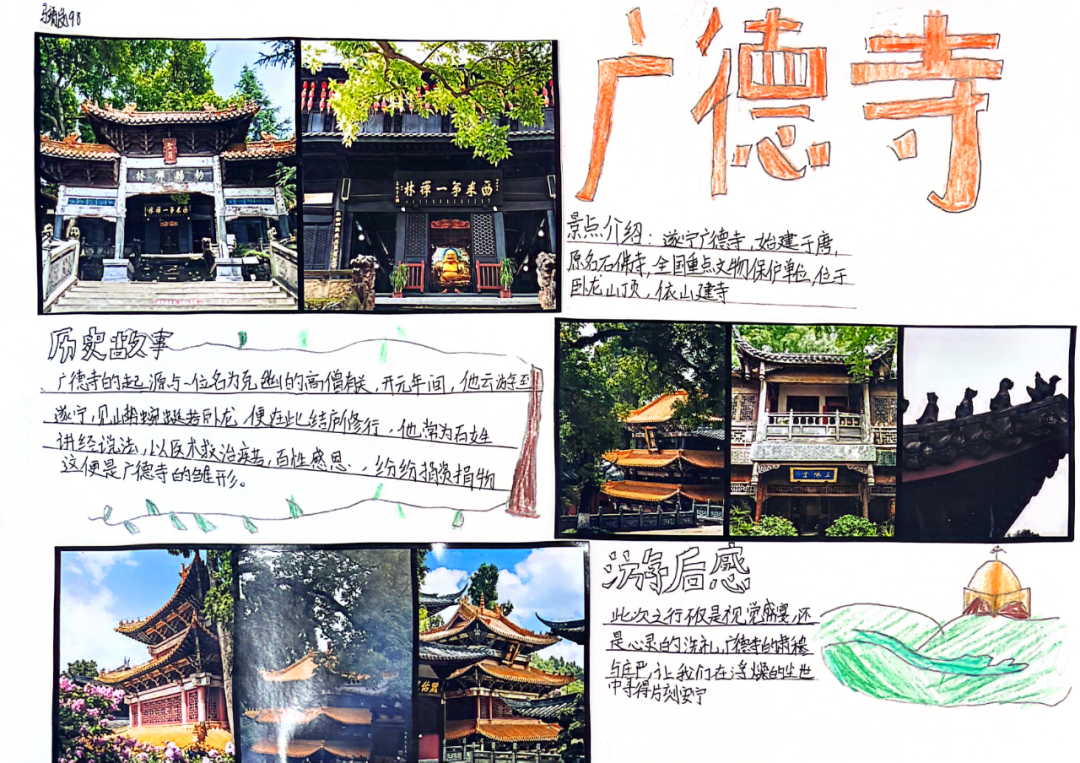 广德寺
勅赐禅林
西来第一禅林
西来第一禅林
景点介绍：遂宁广德寺，始建于唐，
原名石佛寺，全国重点文物保护单位，位于
卧龙山顶，依山建寺
历史故事
广德寺的起源与一位名为克幽的高僧有关，开元年间，他云游至
遂宁，见山峦蜿蜒若卧龙，便在此结庐修行，他常为百姓
讲经说法，以医术救治疾苦，百姓感恩，纷纷捐资捐物
这便是广德寺的雏形。
玉佛堂
游后感
此次之行不仅是视觉盛宴，还
是心灵的洗礼，广德寺的肃穆
与庄严，让我们在浮燥的尘世
中寻得片刻安宁